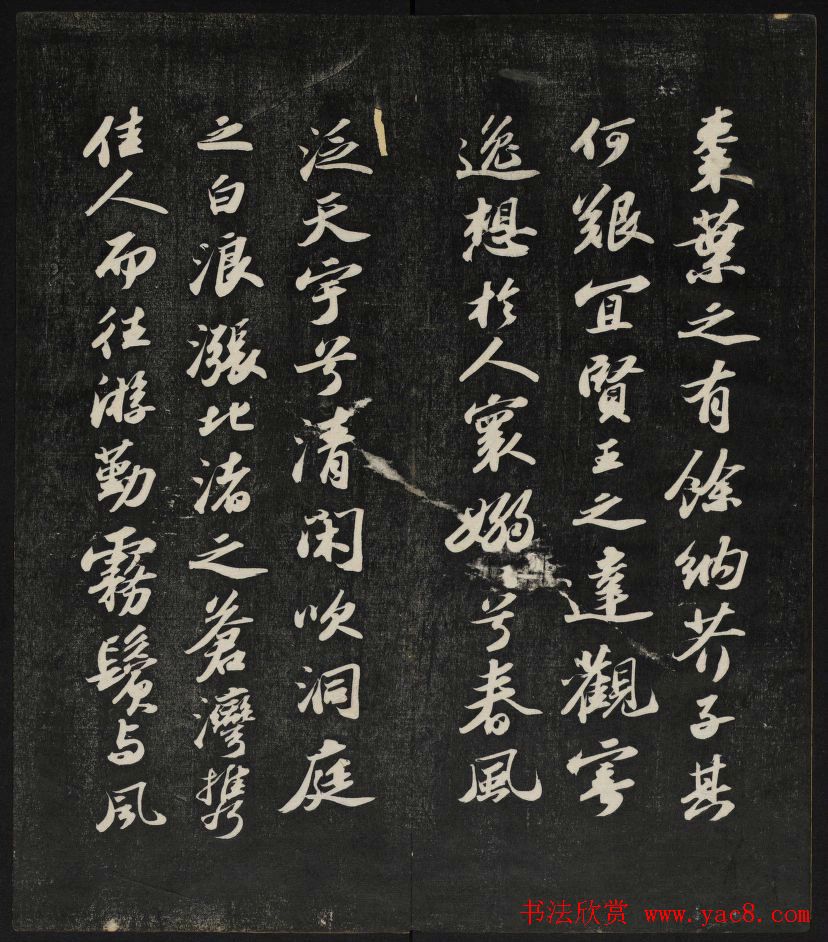 棗葉之有餘納芥子其
何艱宜賢王之達觀寄
逸想於人寰嫋兮春風
泛天宇兮清閑吹洞庭
之白浪漲北渚之蒼灣携
佳人而往游勤霧鬢与風
书法欣赏 www.yac8.com